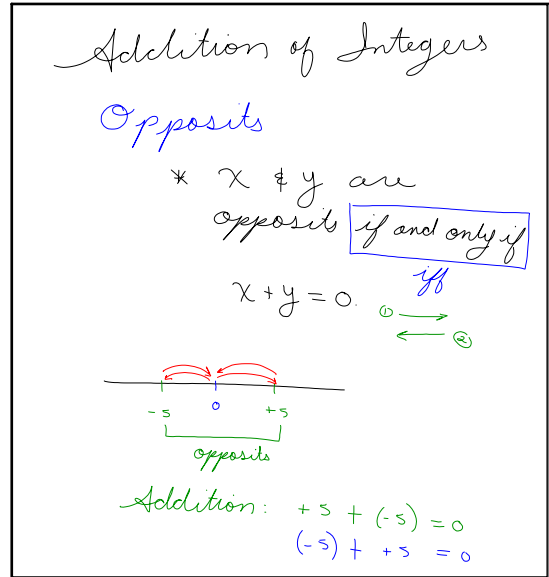 Addition of Integers
Opposits
* x & y are
opposits if and only if
iff
x + y = 0.
① ②
-5 0 +5
opposits
Addition: +5 + (-5) = 0
(-5) + +5 = 0